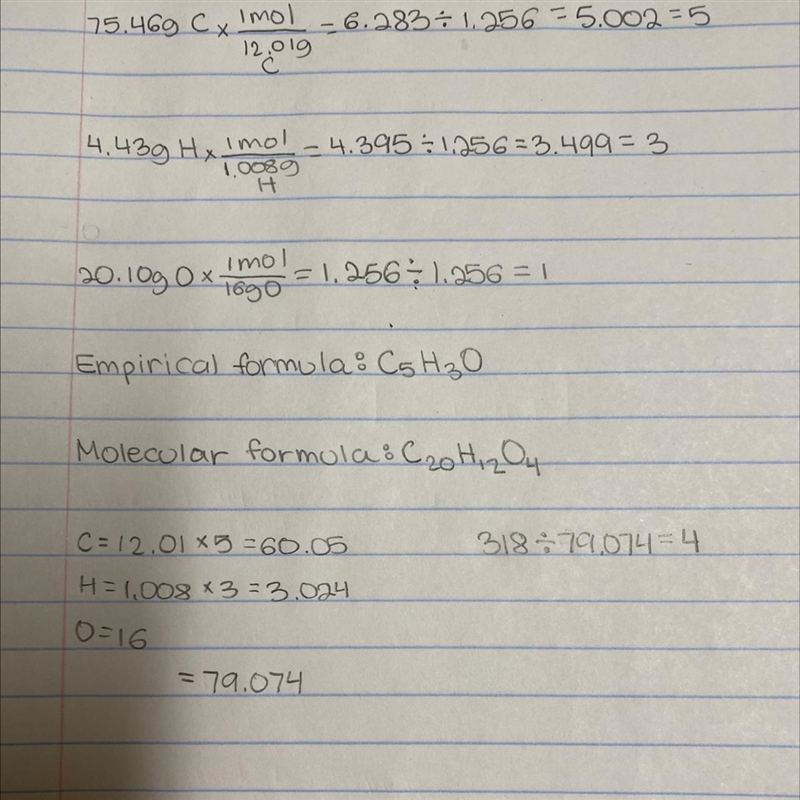 75.46g C x 1mol/12.01g C = 6.283 ÷ 1.256 = 5.002 = 5
4.43g H x 1mol/1.008g H = 4.395 ÷ 1.256 = 3.499 = 3
20.10g O x 1mol/16g O = 1.256 ÷ 1.256 = 1
Empirical formula: C₅H₃O
Molecular formula: C₂₀H₁₂O₄
C = 12.01 x 5 = 60.05 318 ÷ 79.074 = 4
H = 1.008 x 3 = 3.024
O = 16
= 79.074